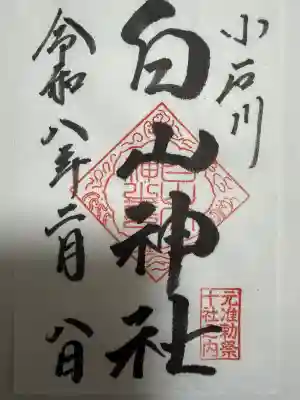 小石川
白山神社
令和八年二月八日
元准勅祭
十社之内